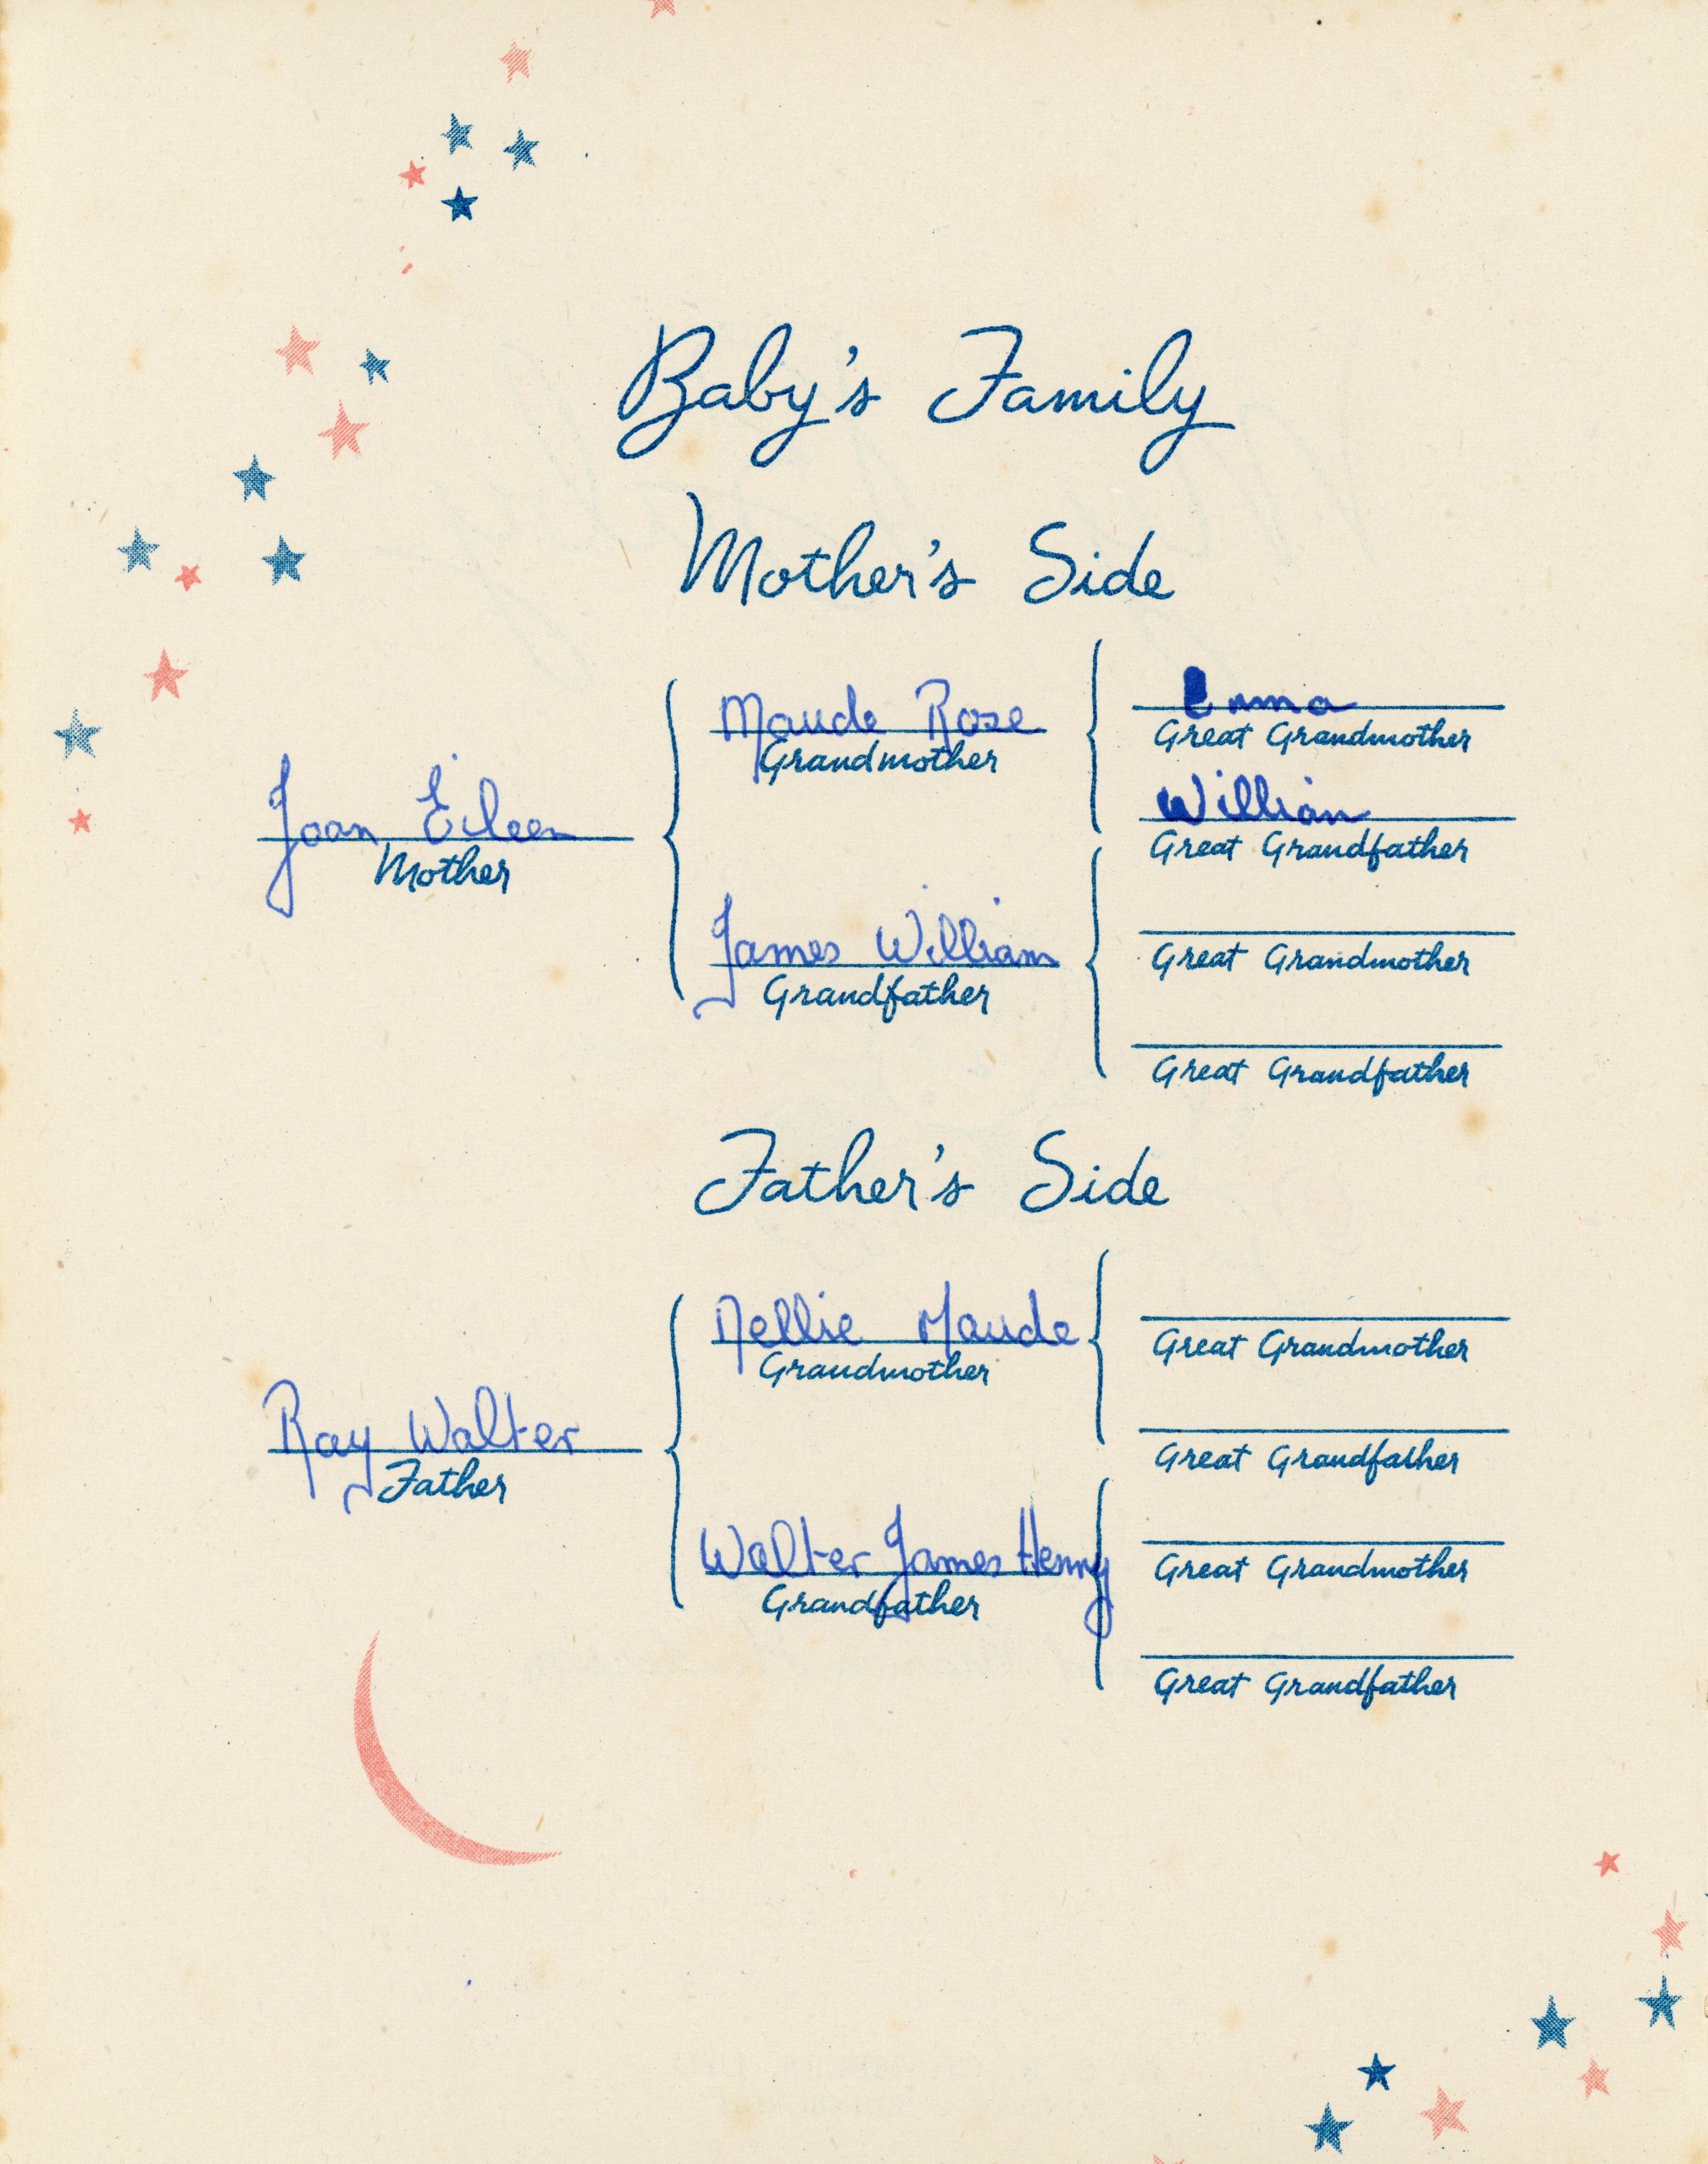 Baby's Family
Mother's Side
Joan Eileen
Mother
Maude Rose
Grandmother
James William
Grandfather
Emma
Great Grandmother
William
Great Grandfather
Great Grandmother
Great Grandfather
Father's Side
Ray Walter
Father
Nellie Maude
Grandmother
Walter James Henry
Grandfather
Great Grandmother
Great Grandfather
Great Grandmother
Great Grandfather